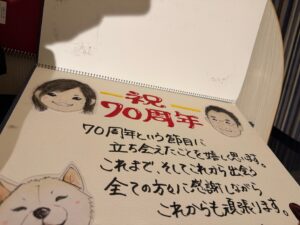 祝
70周年
70周年という節目に
立ち会えたことを嬉しく思います。
これまで、そしてこれから出会う
全ての方々に感謝しながら
これからも頑張ります。